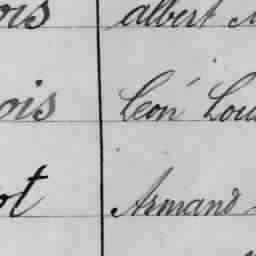 ois albert
ois Léon Lou
ot Armand